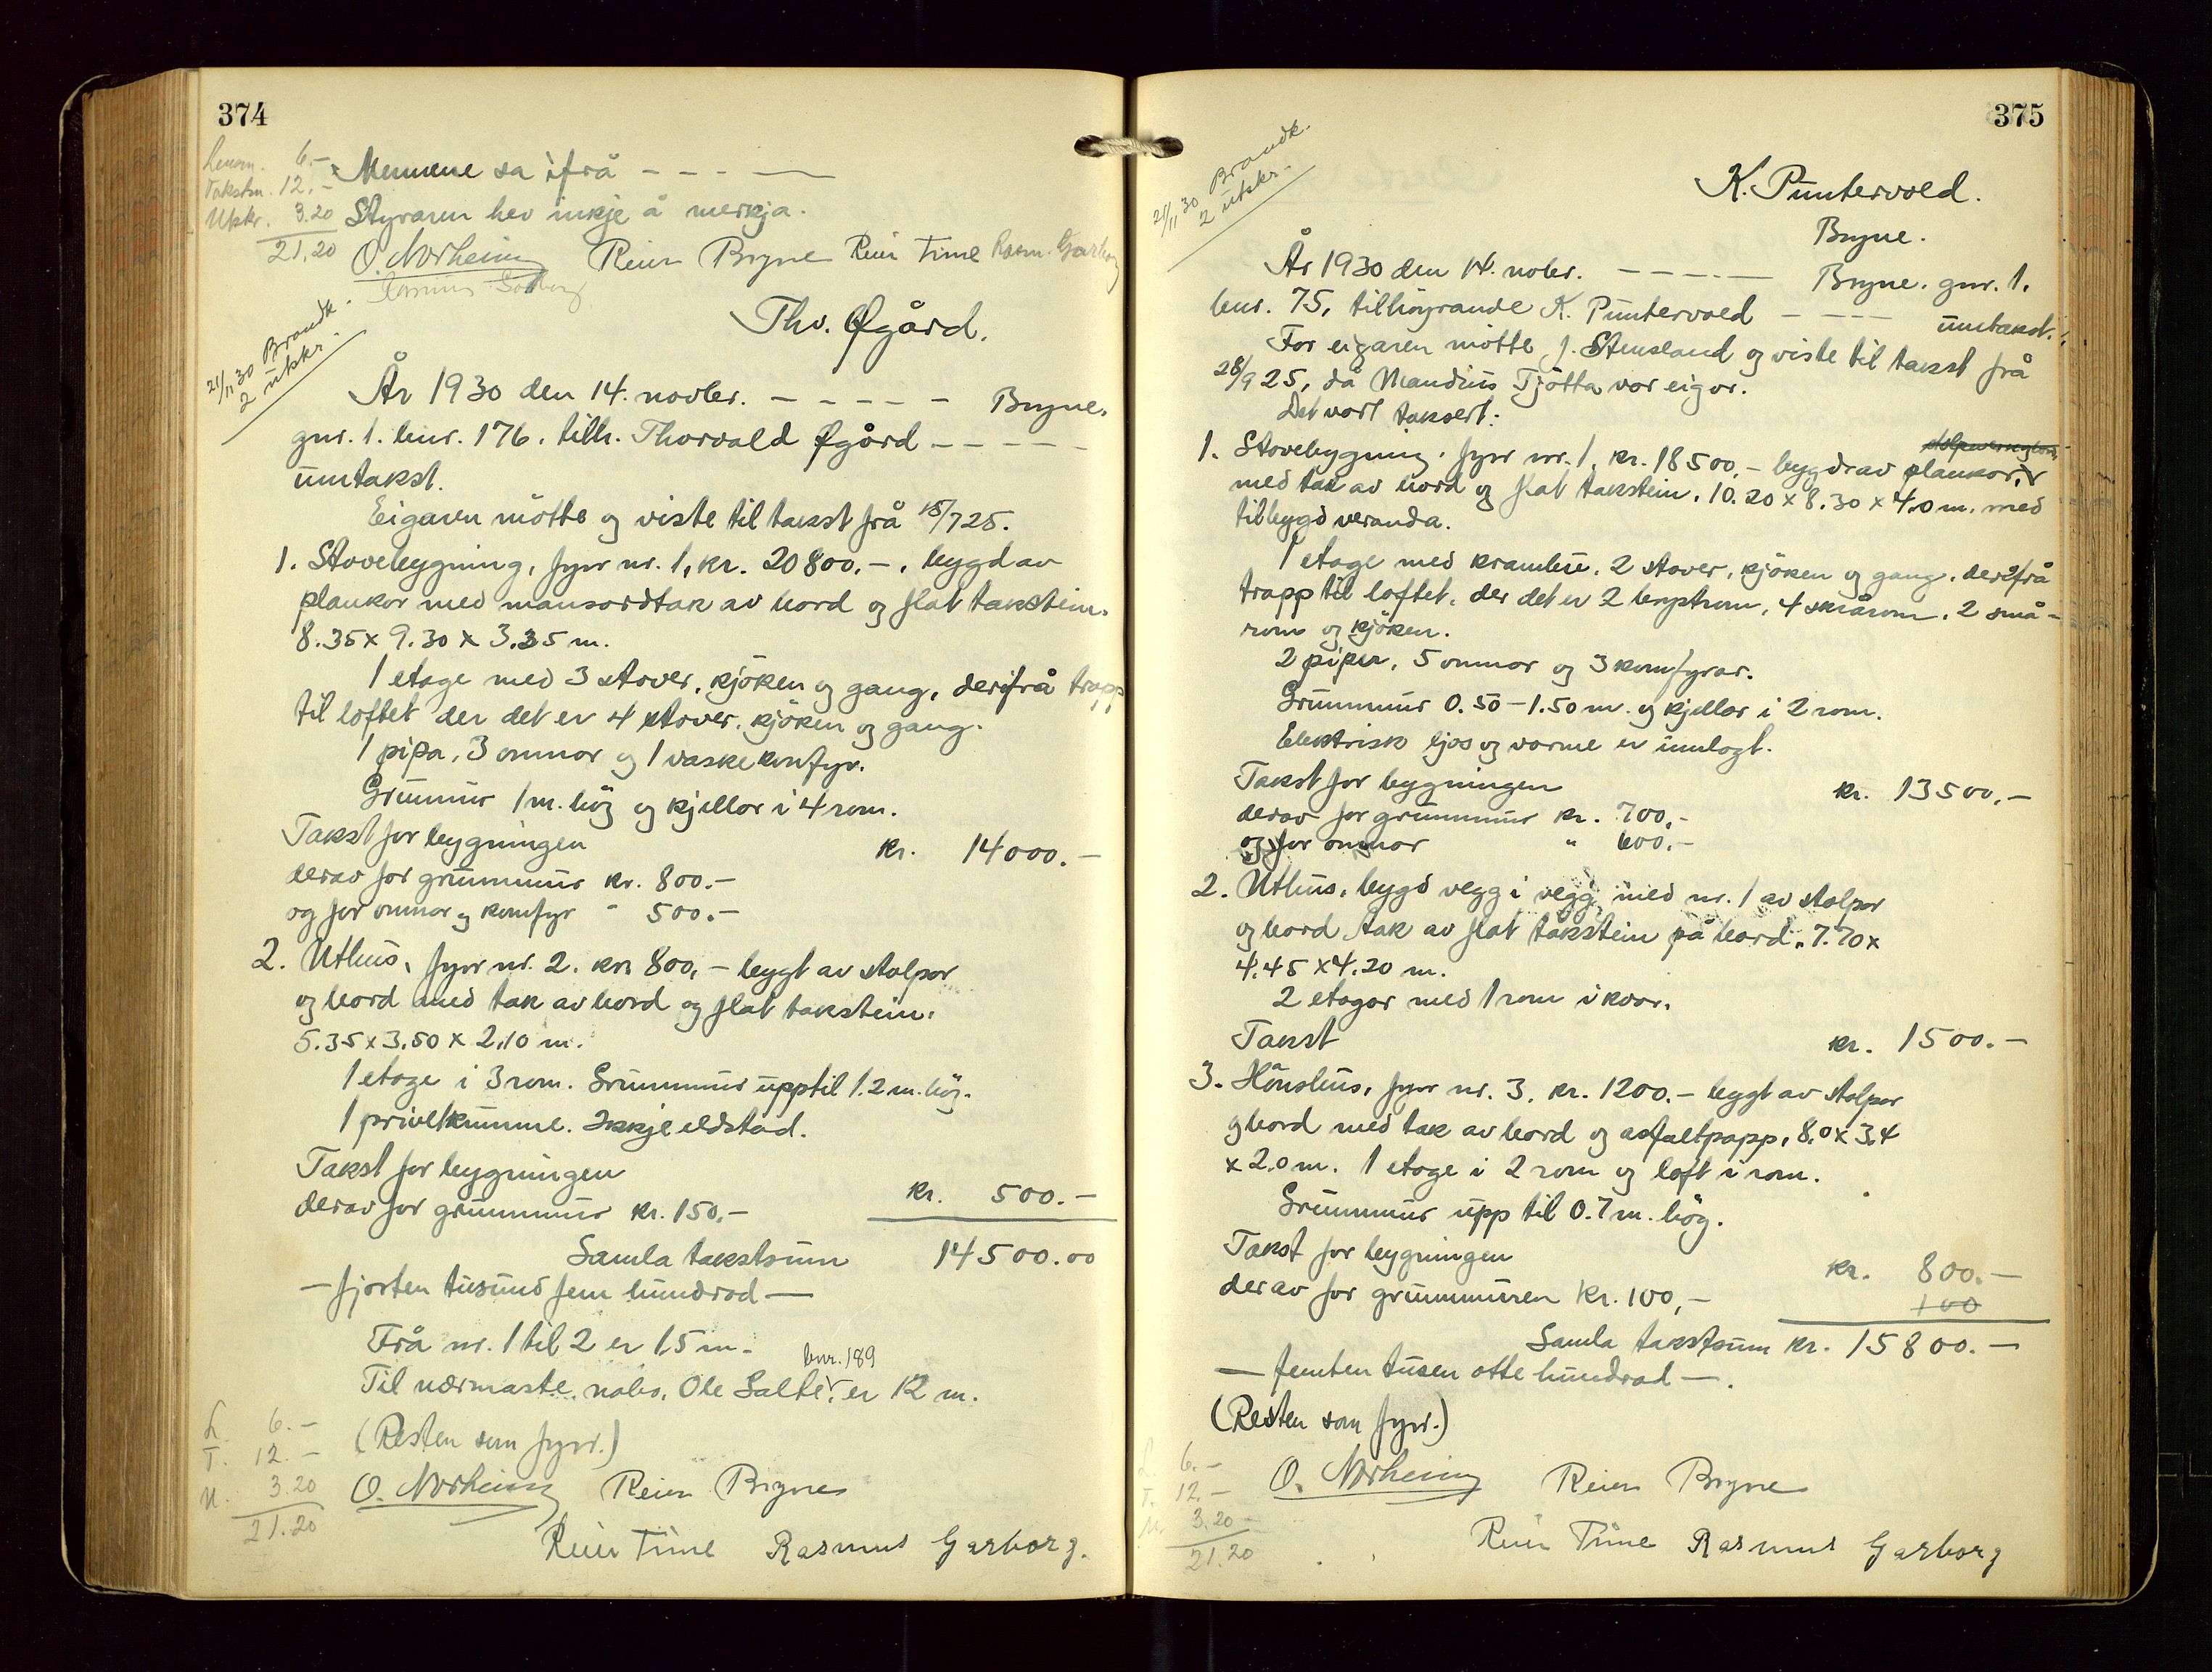 374
Lensm. 6.-
Takstm. 12.-
Utskr. 3.20
21.20
Mennene sa ifrå - - - —
Styraren hev inkje å merkja.
O. Norheim Reier Bryne Reier Time Rasm. Garborg
Rasmus Garborg
21/11 30 Brandk.
2 utskr.
Thv. Øgård.
År 1930 den 14. novbr. - - - - - Bryne.
gnr. 1. bnr. 176. tilh. Thorvald Øgård - - - - -
umtakst.
Eigaren møtte og viste til takst frå 15/7 25.
1. Stovebygning, fyrr nr. 1, kr. 20800.-. bygd av
plankor med mansardtak av bord og flat takstein.
8.35 x 9.30 x 3.35 m.
1 etage med 3 stover, kjøken og gang, derifrå trapp
til loftet der det er 4 stover, kjøken og gang.
1 pipa, 3 omnar og 1 vaskekomfyr.
Grunmur 1 m. høg og kjellar i 4 rom.
Takst for bygningen kr. 14000.-
derav for grunnmur kr. 800.-
og for omnar og komfyr " 500.-
2. Uthus, fyrr nr. 2. kr. 800,- bygt av stolpar
og bord med tak av bord og flat takstein.
5.35 x 3.50 x 2.10 m.
1 etage i 3 rom. Grunnmur upptil 1.2 m. høg.
1 privetkumme. Ikkje eldstad.
Takst for bygningen kr. 500.-
derav for grunnmur kr. 150,-
Samla takstsum 14500.00
— fjorten tusund fem hundrad —
Frå nr. 1 til 2 er 1.5 m.
bnr. 189
Til nærmaste nabo, Ole Salte, er 12 m.
(Resten som fyrr.)
L. 6.-
T. 12.-
U. 3.20
21.20
O. Norheim Reier Bryne
Reier Time Rasmus Garborg.
375
21/11 30 Brandk.
2 utskr.
K. Puntervold.
Bryne.
År 1930 den 14. nobr. - - - - — Bryne. gnr. 1.
bnr. 75, tilhøyrande K. Puntervold - - - - umtakst.
For eigaren møtte J. Stensland og viste til takst frå
28/9 25, då Maudius Tjøtta var eigar.
Det vart taksert:
1. Stovebygning. fyrr nr. 1. kr. 18500,- bygd av plankor,
med tak av bord og flat takstein. 10.20 x 8.30 x 4.0 m. med
tilbygd veranda.
1 etage med krambu. 2 stover, kjøken og gang. derifrå
trapp til loftet, der det er 2 brystrom, 4 skrårom. 2 små-
rom og kjøken.
2 pipur, 5 omnar og 3 komfyrar.
Grunnmur 0.50-1.50 m. og kjellar i 2 rom.
Elektrisk ljos og varme er innlagt.
Takst for bygningen kr. 13500.-
derav for grunnmur kr. 700,-
og for omnar " 600.-
2. Uthus, bygd vegg i vegg med nr. 1 av stolpar
og bord tak av flat takstein på bord. 7.70 x
4.45 x 4.20 m.
2 etagar med 1 rom i kvar.
Takst kr. 1500.-
3. Hønshus, fyrr nr. 3. kr. 1200.- bygt av stolpar
og bord med tak av bord og asfaltpapp, 8.0 x 3.4
x 2.0 m. 1 etage i 2 rom og loft i rom.
Grunnmur upp til 0.7 m. høg.
Takst for bygningen kr. 800.-
derav for grunnmuren kr. 100,- 100
Samla takstsum kr. 15800.-
— femten tusen otte hundrad —.
(Resten som fyrr.)
L. 6.-
T. 12.-
U. 3.20
21.20
O. Norheim Reier Bryne
Reier Time Rasmus Garborg